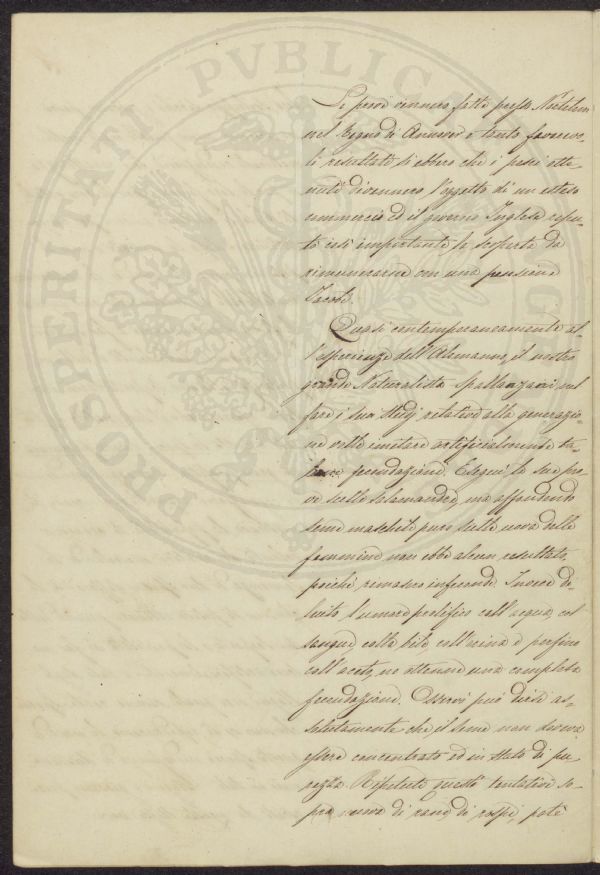 PROSPERITATI PVBLICAE
Le prove vennero fatte presso
nel Regno di Annover e tanto favorevo-
li resultati si ebbero che i pesci otte-
nuti divennero l'oggetto di un esteso
commercio ed il governo Inglese repu-
tò così importante la scoperta da
rimunerarne con una pensione
Jacobi.
Quasi contemporaneamente al-
l'esperienze dell'Alemanno, il nostro
grande Naturalista Spallanzani nel
fare i suoi studj relativi alla generazio-
ne volle imitare artificialmente ta-
fecondazione. Eseguì le sue pro-
ve sulle salamandre, ma affondendo
seme maschile puro sulle uova delle
femmine non ebbe alcun resultato,
poiché rimasero infeconde. Invece di-
luito l'umore prolifico coll'acqua, col
sangue, colla bile, coll'orina e perfino
coll'aceto, ne ottenne una completa
fecondazione. Osservò può dirsi as-
solutamente che il seme non doveva
essere concentrato ed in stato di pu-
rezza. Ripetute questi tentativi so-
pra uova di rane, di rospi, potè